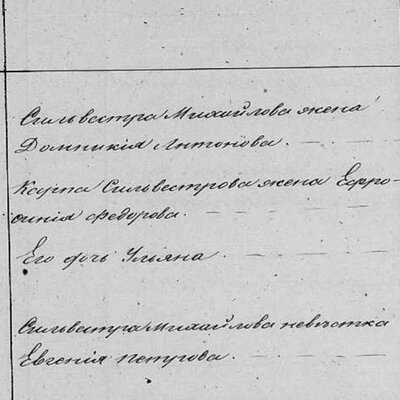 Сильвестра Михайлова жена
Домникія Антонова.
Карпа Сильвестрова жена Евфро-
синія Федорова.
Его дочь Ульяна.
Сильвестра Михайлова невѣстка
Евгенія Петрова.